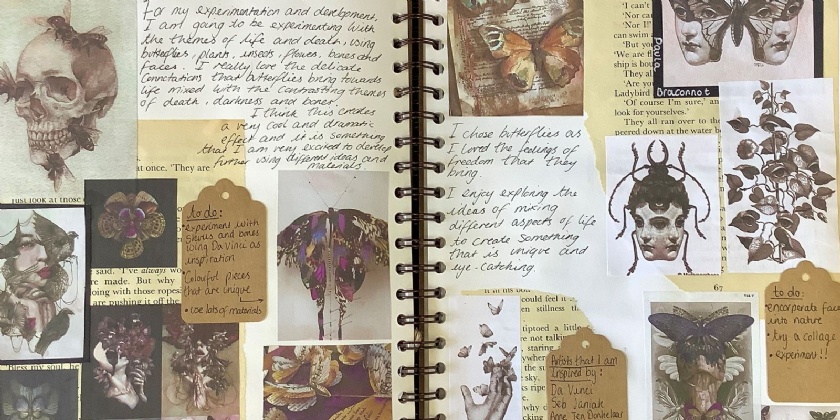 For my experimentation and development,
I am going to be experimenting with
the themes of life and death, using
butterflies, plants, insects, flowers, bones and
faces. I really love the delicate
connotations that butterflies bring towards
life mixed with the contrasting themes
of death, darkness and bones.
I think this creates
a very cool and dramatic
effect and it is something
that I am very excited to develop
further using different ideas and
materials.
at once. 'They are
just look at those
to do:
experiment with
skulls and bones
using Da Vinci as
inspiration
• Colourful pieces
that are unique
• use lots of materials
said. 'I've always wo
re made. But why
oing with those ropes
are pushing it off the
'Bless my soul, he
I chose butterflies as
I loved the feelings of
freedom that they
bring.
I enjoy exploring the
ideas of mixing
different aspects of life
to create something
that is unique and
eye-catching.
'I can't
'Nor can
can swim
'But you
'We are fi
ship is bo
They al
'Are you
Ladybird
'Of course I'm sure,' an
look for yourselves.'
They all ran over to the
peered down at the water b
Paula
Braconnot
67
could feel it
en stillness
tiptoed a little
are not talki
, staring
to do:
• encorporate faces
into nature
• try a collage
• experiment!!
Artists that I am
Inspired by:
Da Vinci
Seb Janiak
Anne Ten Donkelaar